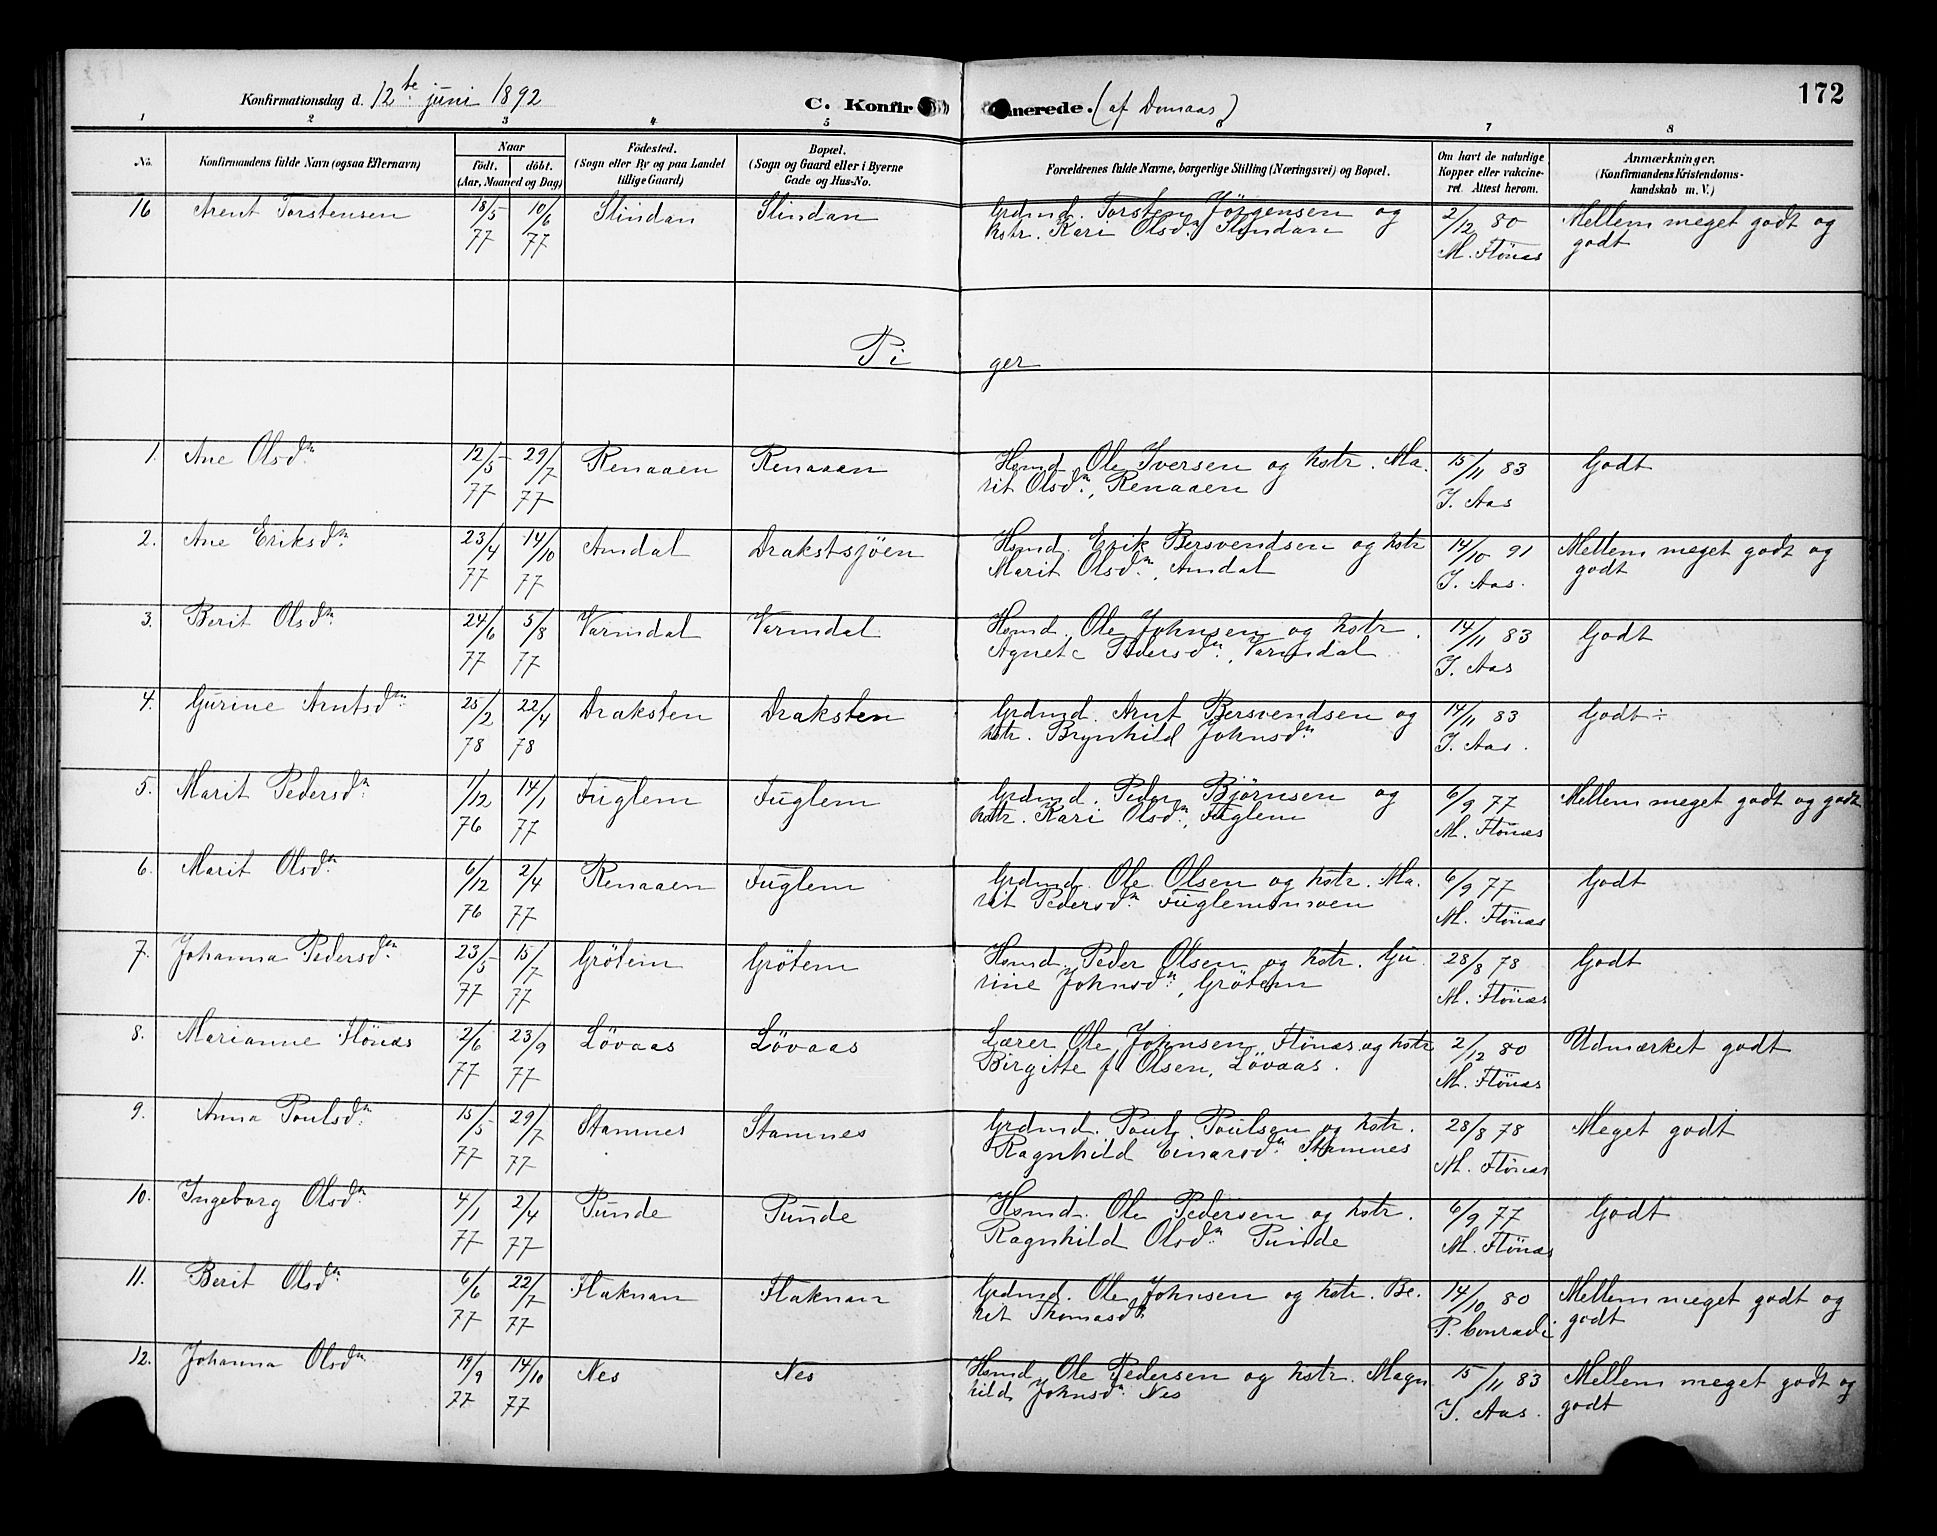 172
Konfirmationsdag d. 12te juni 1892 C. Konfir nerede. (af Domaas)
1 2 3 4 5 6 7 8
No. Konfirmandens fulde Navn (ogsaa Efternavn) Naar født. døbt. (Aar, Maaned og Dag) Födested. (Sogn eller By og paa Landet tillige Gaard) Bopæl. (Sogn og Gaard eller i Byerne Gade og Hus-No. Forældrenes fulde Navne, borgerlige Stilling (Næringsvei) og Bopæl. Om havt de naturlige Kopper eller vakcineret. Attest herom. Anmærkninger. (Konfirmandens Kristendomskundskab m. V.)
16 Arent Torstensen 18/5 77 10/6 77 Slindan Slindan Grdmd. Torsten Jörgensen og
kstr. Kari Olsdn. Slindan 2/12 80 M. Flönæs Mellem meget godt og
godt
Pi ger
1. Ane Olsdn 12/5 77 29/7 77 Renaaen Renaaen Hsmd. Ole Iversen og kstr. Ma-
rit Olsdn., Renaaen 15/11 83 J. Aas Godt
2. Ane Eriksdn. 23/4 77 14/10 77 Amdal Drakstsjöen Hsmd. Erik Bersvendsen og kstr
Marit Olsdn., Amdal 14/10 91 J. Aas. Mellem meget godt og
godt
3. Berit Olsdn. 24/6 77 5/8 77 Varmdal Varmdal Hsmd. Ole Johnsen og kstr.
Agnete Pedersdn., Varmdal 14/11 83 J. Aas Godt
4. Gurine Arntsdn. 25/2 78 22/4 78 Draksten Draksten Grdmd. Arnt Bersvendsen og
kstr. Brynhild Johnsdn 14/11 83 J. Aas. Godt ÷
5. Marit Pedersdn. 1/12 76 14/1 77 Fuglem Fuglem Grdmd. Peder Björnsen og
kstr. Kari Olsdn., Fuglem 6/9 77 M. Flönæs Mellem meget godt og godt
6. Marit Olsdn. 6/12 76 2/4 77 Renaaen Fuglem Grdmd. Ole Olsen og kstr. Ma-
rit Pedersdn. Fuglemsmoen 6/9 77 M. Flönæs Godt
7. Johanna Pedersdn. 23/5 77 15/7 77 Grötem Grötem Hsmd. Peder Olsen og kstr. Gu-
rine Johnsdn., Grötem 28/8 78 M. Flönæs Godt
8. Marianne Flönæs 2/6 77 23/9 77 Lövaas Lövaas Lærer Ole Johnsen Flönæs og kstr
Birgitte f. Olsen, Lövaas. 2/12 80 M. Flönæs Udmærket godt
9. Anna Poulsdn. 15/5 77 29/7 77 Stamnes Stamnes Grdmd. Poul Poulsen og kstr.
Ragnhild Einarsdn. Stamnes 28/8 78 M. Flönæs Meget godt
10. Ingeborg Olsdn. 4/1 77 2/4 77 Punde Punde Hsmd. Ole Pedersen og kstr.
Ragnhild Olsdn. Punde 6/9 77 M. Flönæs Godt
11. Berit Olsdn. 6/6 77 22/7 77 Flaknan Flaknan Grdmd. Ole Johnsen og kstr. Be-
rit Thomasdn 14/10 80 P. Conradi Mellem meget godt og
godt
12. Johanna Olsdn 19/9 77 14/10 77 Nes Nes Hsmd. Ole Pedersen og kstr. Magn
hild Johnsdn. Nes 15/11 83 J. Aas. Mellem meget godt og
godt